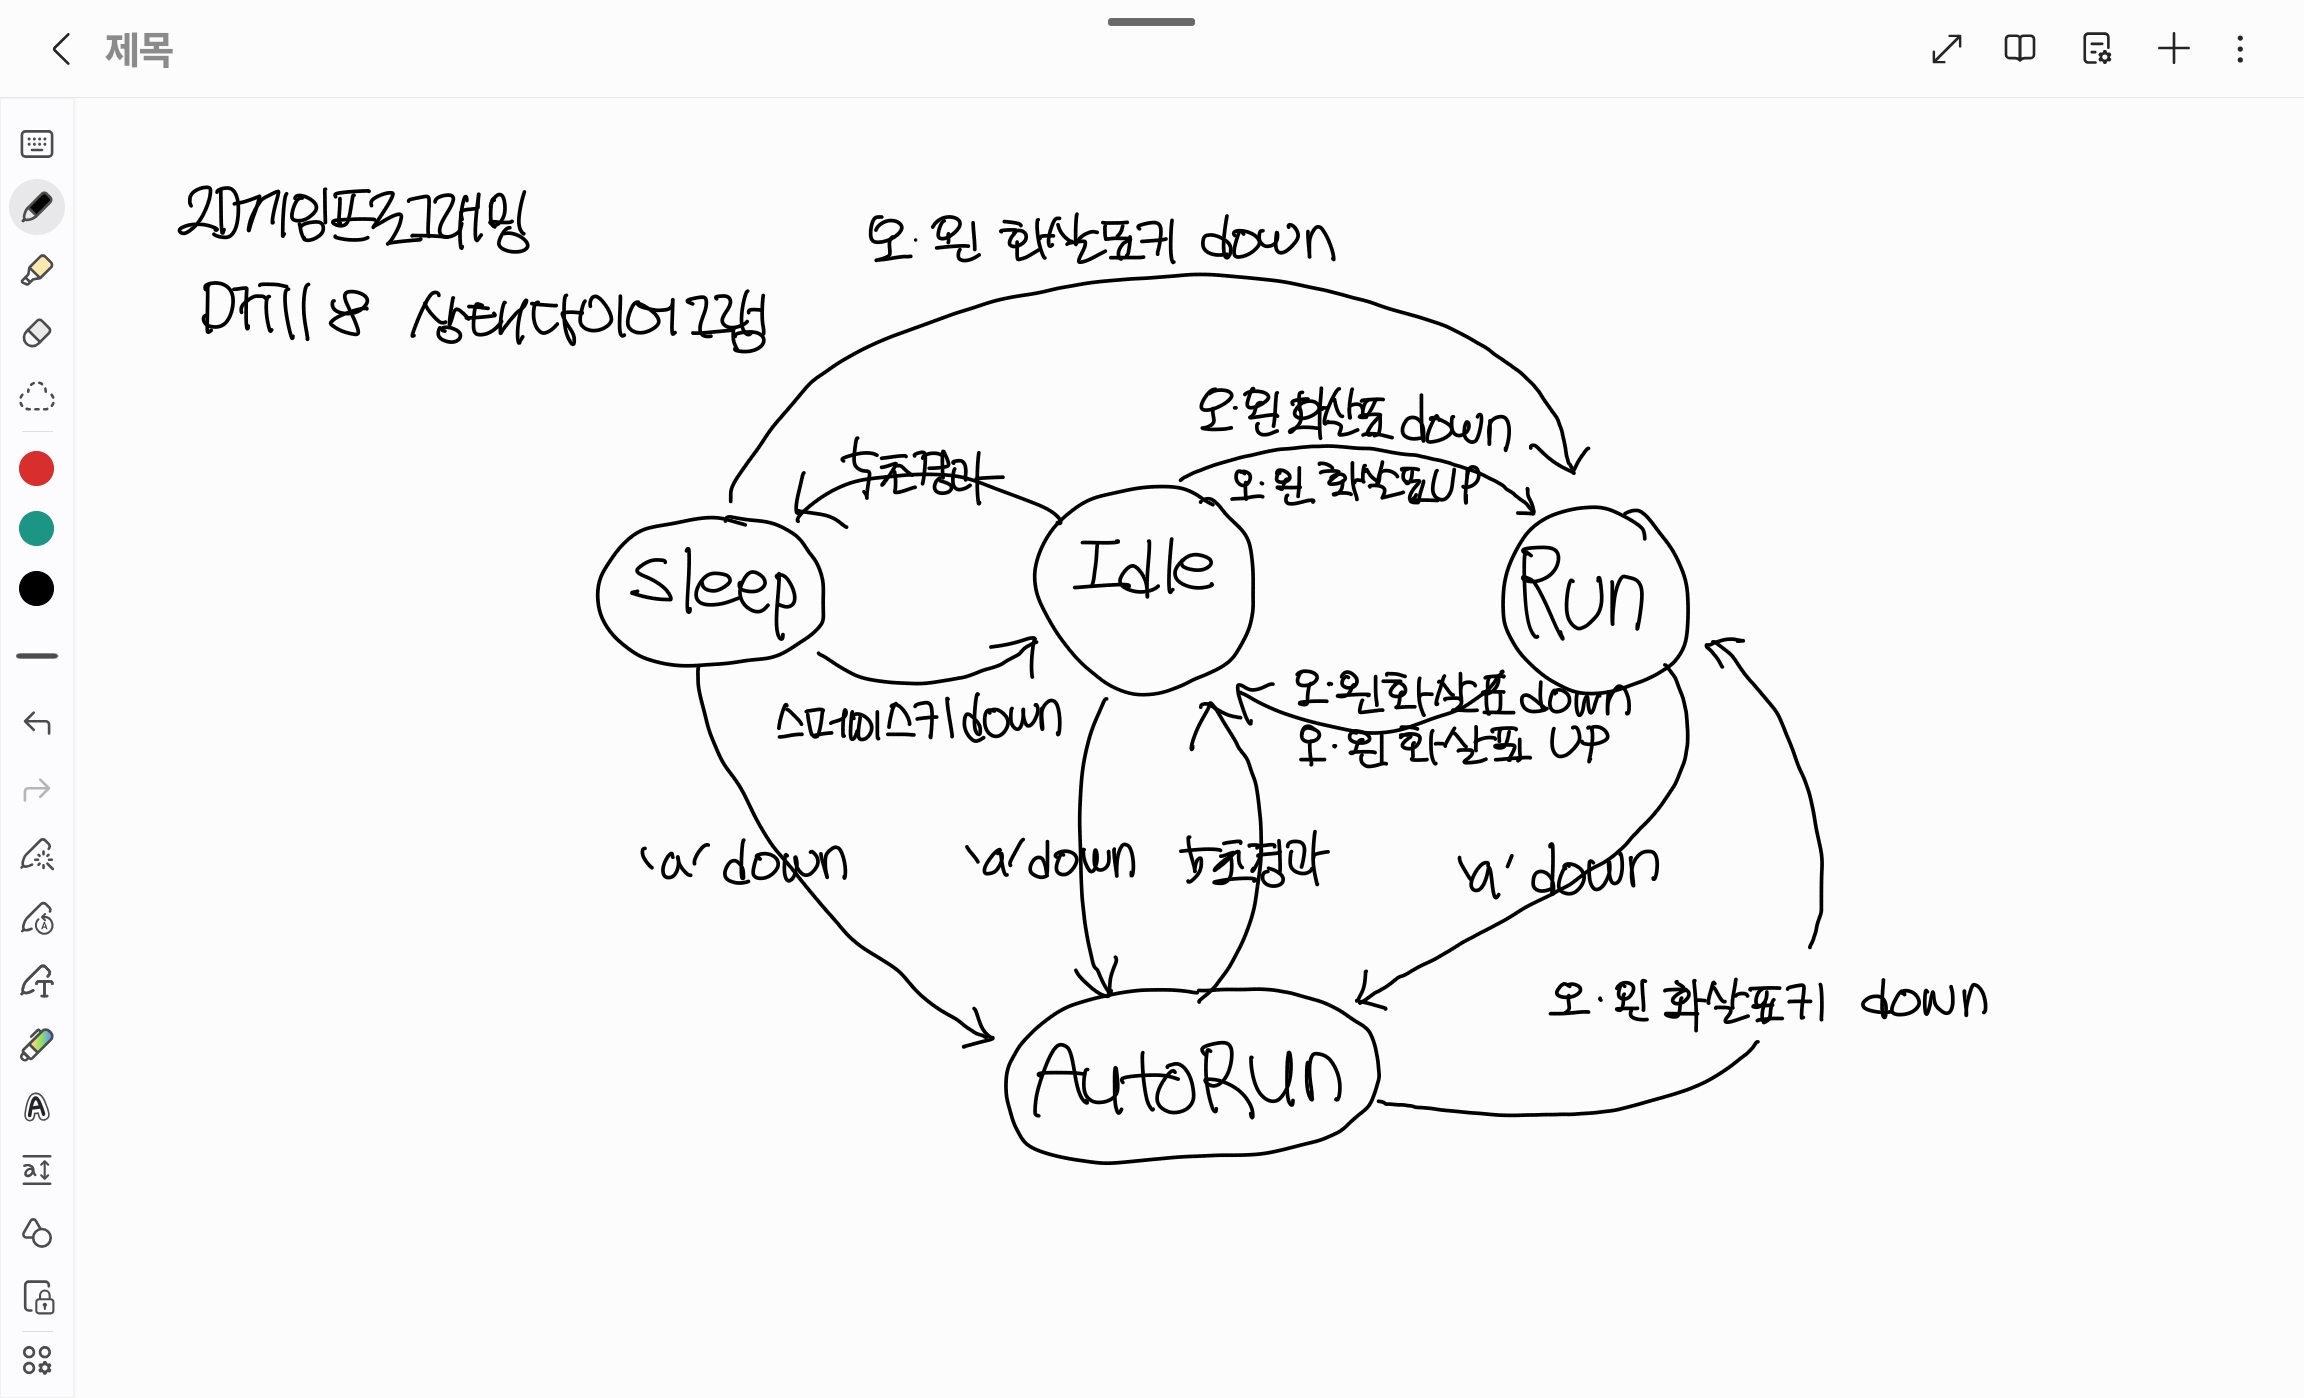 제목
2D게임프로그래밍
Drill 8 상태다이어그램
오·왼 화살표키 down
오·왼 화살표 down
오·왼 화살표 UP
5초경과
Sleep
Idle
Run
스페이스키 down
오·왼 화살표 down
오·왼 화살표 UP
'a' down
'a' down
5초경과
'a' down
오·왼 화살표키 down
AutoRun